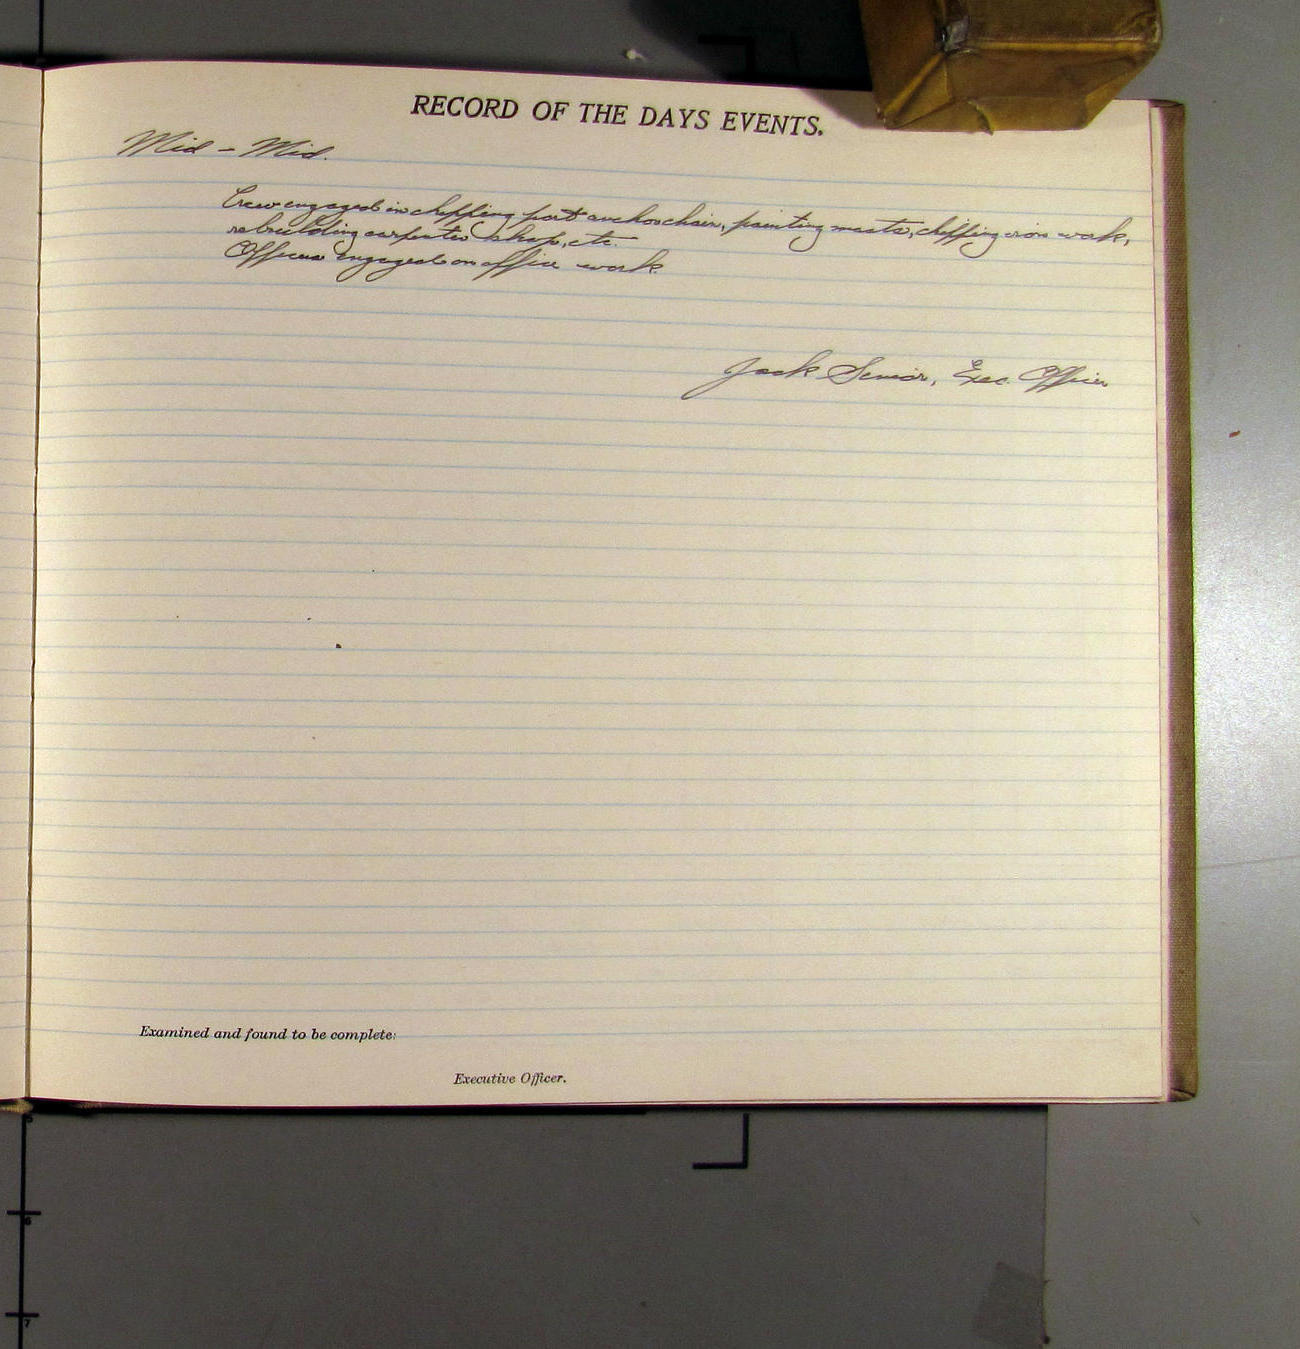 RECORD OF THE DAYS EVENTS.
Mid - Mid.
Crew engaged in chipping port anchor chain, painting masts, chipping iron work,
rebuilding carpenter shop, etc.
Officers engaged on office work.
Jack Senior, Exec. Officer
Examined and found to be complete:
Executive Officer.
6
7